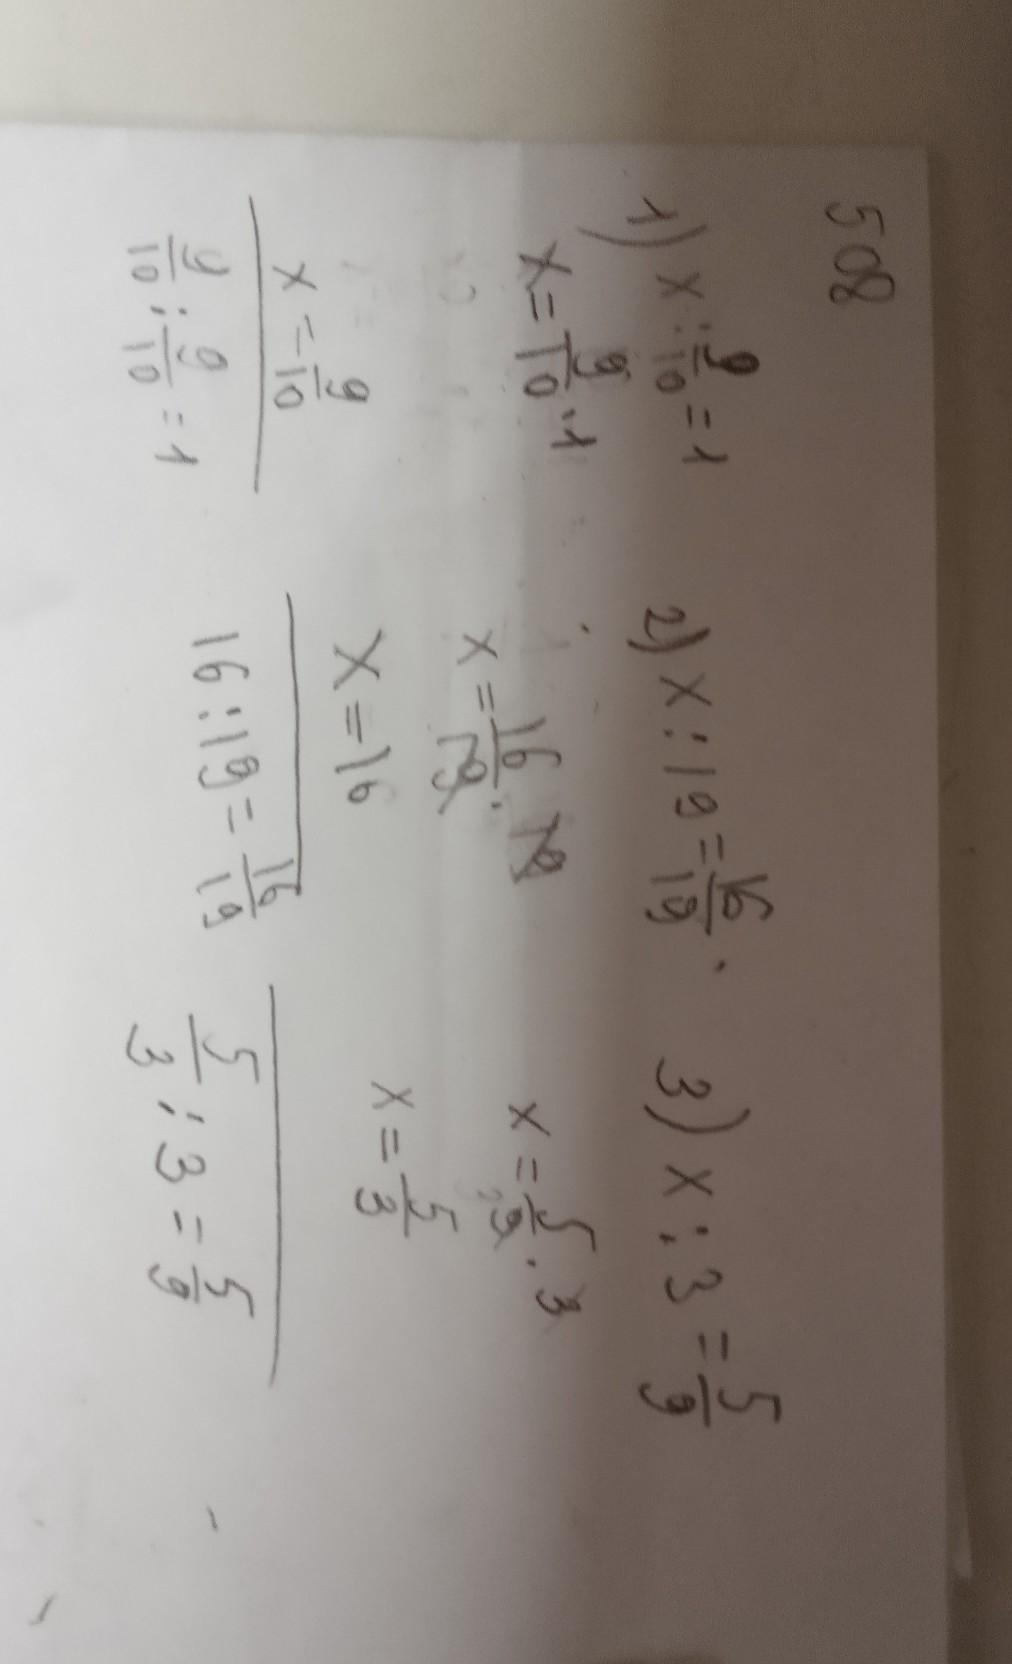 508
1) x : 9/10 = 1
x = 9/10 · 1
x = 9/10
9/10 : 9/10 = 1
2) x : 19 = 16/19
x = 16/19 · 19
x = 16
16 : 19 = 16/19
3) x : 3 = 5/9
x = 5/9 · 3
x = 5/3
5/3 : 3 = 5/9